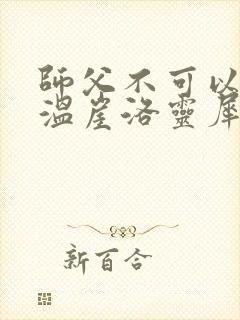 師父不可以
溫崖洛靈犀
新百合